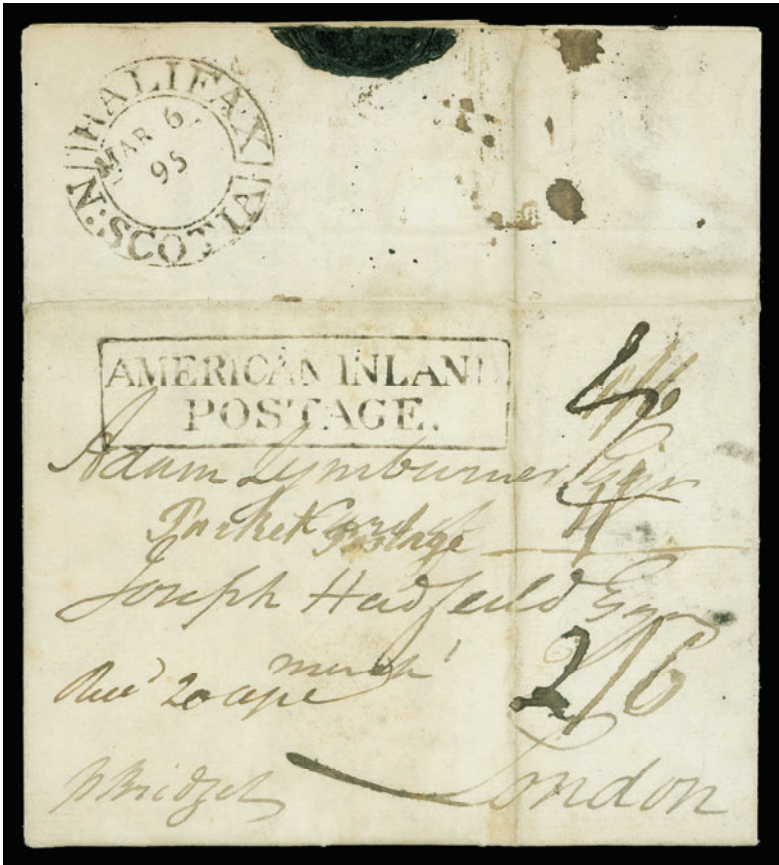 HALIFAX
MAR 6
95
N: SCOTIA
AMERICAN INLAND
POSTAGE.
4
Adam Lymburner Esqr
Packet
Postage
Joseph Hadfield Esqr
2/6
20
London